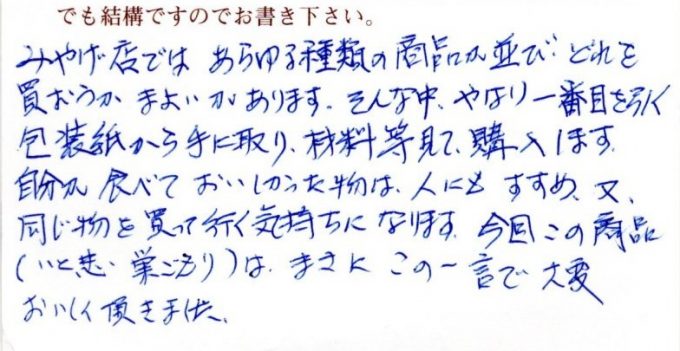 でも結構ですのでお書き下さい。
みやげ店では あらゆる種類の商品が並び どれを
買おうか まよいがあります。そんな中、やはり一番目を引く
包装紙から手に取り、材料等見て、購入します。
自分が 食べて おいしかった物は、人にも すすめ、又、
同じ物を買って行く気持ちになります。今回この商品
(いと恋・巣ごもり)は、まさに この一言で 大変
おいしく頂きました。